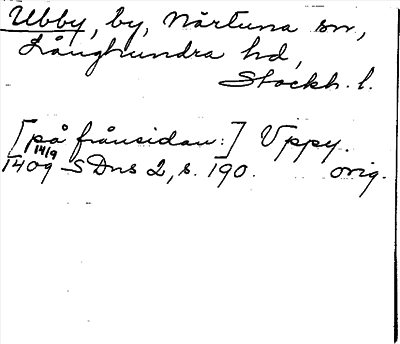 Ubby, by, Närtuna sn,
Långhundra hd,
Stockh. l.
[på frånsidan:] Uppy.
14/9
1409 SDns 2, s. 190. orig.